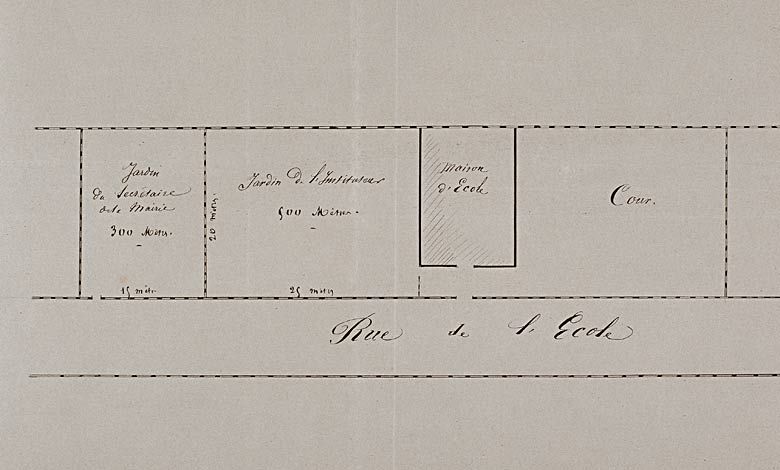 Jardin
du Secrétaire
de la Mairie
300 Mètres.
15 mèt.
20 mètres.
Jardin De l'Instituteur
500 Mètres.
25 mètres
Maison
d'Ecole
Cour.
Rue de l'Ecole